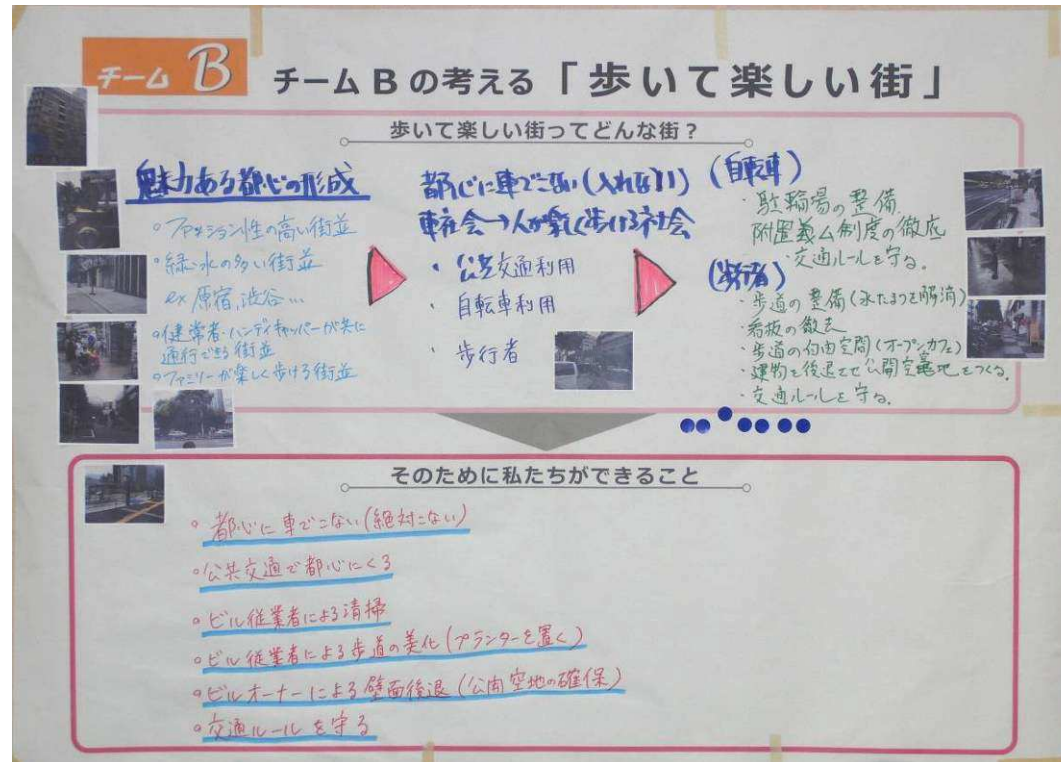 チーム B
チーム B の考える「歩いて楽しい街」
歩いて楽しい街ってどんな街？
魅力ある都心の形成
○ファッション性の高い街並
○緑・水の多い街並
ex 原宿,渋谷...
○健常者・ハンディキャッパーが共に
通行できる街並
○ファミリーが楽しく歩ける街並
都心に車でこない(入れない)
車社会→人が楽しく歩ける社会
・公共交通利用
・自転車利用
・歩行者
(自転車)
・駐輪場の整備
附置義ム制度の徹底
・交通ルールを守る.
(歩行者)
・歩道の整備(水たまりを解消)
・看板の撤去
・歩道の自由空間(オープンカフェ)
・建物を後退させ公開空地をつくる.
・交通ルールを守る.
そのために私たちができること
○都心に車でこない(絶対こない)
○公共交通で都心にくる
○ビル従業者による清掃
○ビル従業者による歩道の美化(プランターを置く)
○ビルオーナーによる壁面後退(公開空地の確保)
○交通ルールを守る